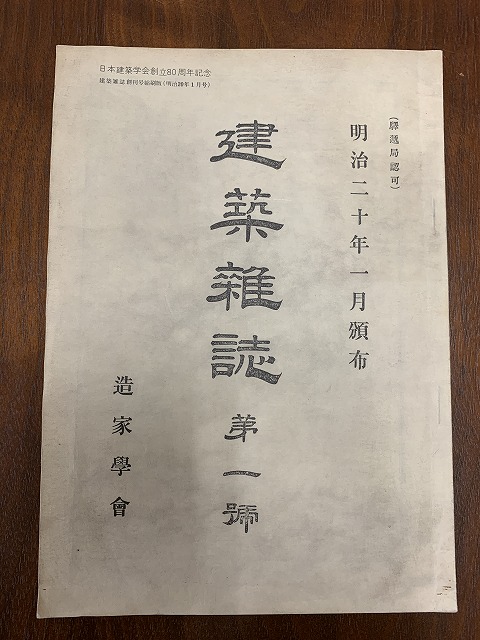 日本建築学会創立80周年記念
建築雑誌創刊号縮刷版(明治20年1月号)
(驛遞局認可)
明治二十年一月頒布
建築雜誌 第一號
造家學會